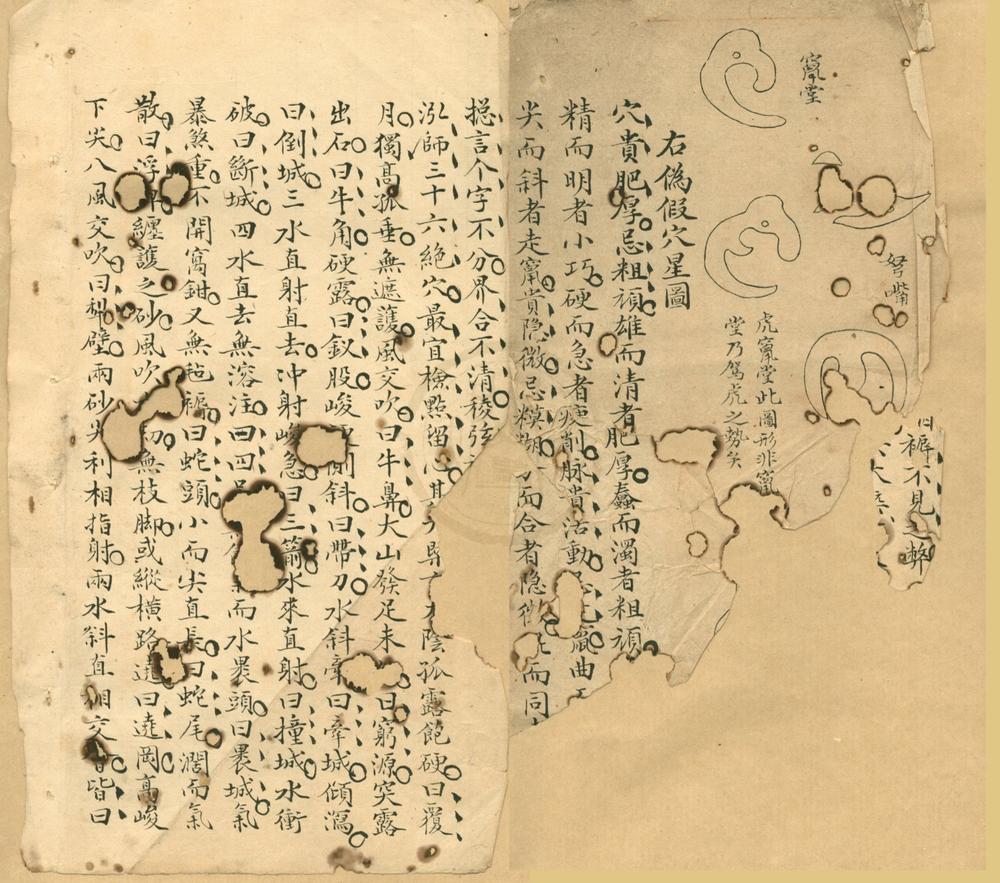 不見之弊
竄堂
嘴
虎竄堂此圖形非竄
堂乃駕虎之勢矣
右偽假穴星圖
穴貴肥厚忌粗頑雄而清者肥厚蠢而濁者粗頑
精而明者小巧硬而急者瘦削脉貴活動亂曲
尖而斜者走竄貴隐微忌糢糊而合者隐微而同
捴言个字不分界合不清稜弦
泓師三十六絶穴最宜檢點留心其陰孤露飽硬曰覆
月獨高孤垂無遮護風交吹曰牛鼻大山發足未曰窮源突露
出石曰牛角硬露曰釵股峻側斜曰帶刀水斜牽曰牽城傾瀉
曰倒城三水直射直去冲射峻急曰三箭水來直射曰撞城水衝
破曰斷城四水直去無溶注曰四而水褁頭曰褁城氣
暴煞重不開窩鉗又無毡褥曰蛇頭小而尖直長曰蛇尾濶而氣
散曰浮纏護之砂風吹刧無枝脚或縱橫路遶曰遶岡高峻
下尖八風交吹曰壁兩砂尖利相指射兩水斜直相交皆曰